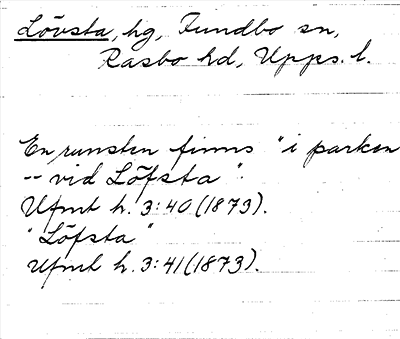 Lövsta, hg, Fundbo sn,
Rasbo hd, Upps. l.
En runsten finns "i parken
-- vid Löfsta".
Ufmt h. 3:40 (1873).
"Löfsta"
Ufmt h. 3:41 (1873).